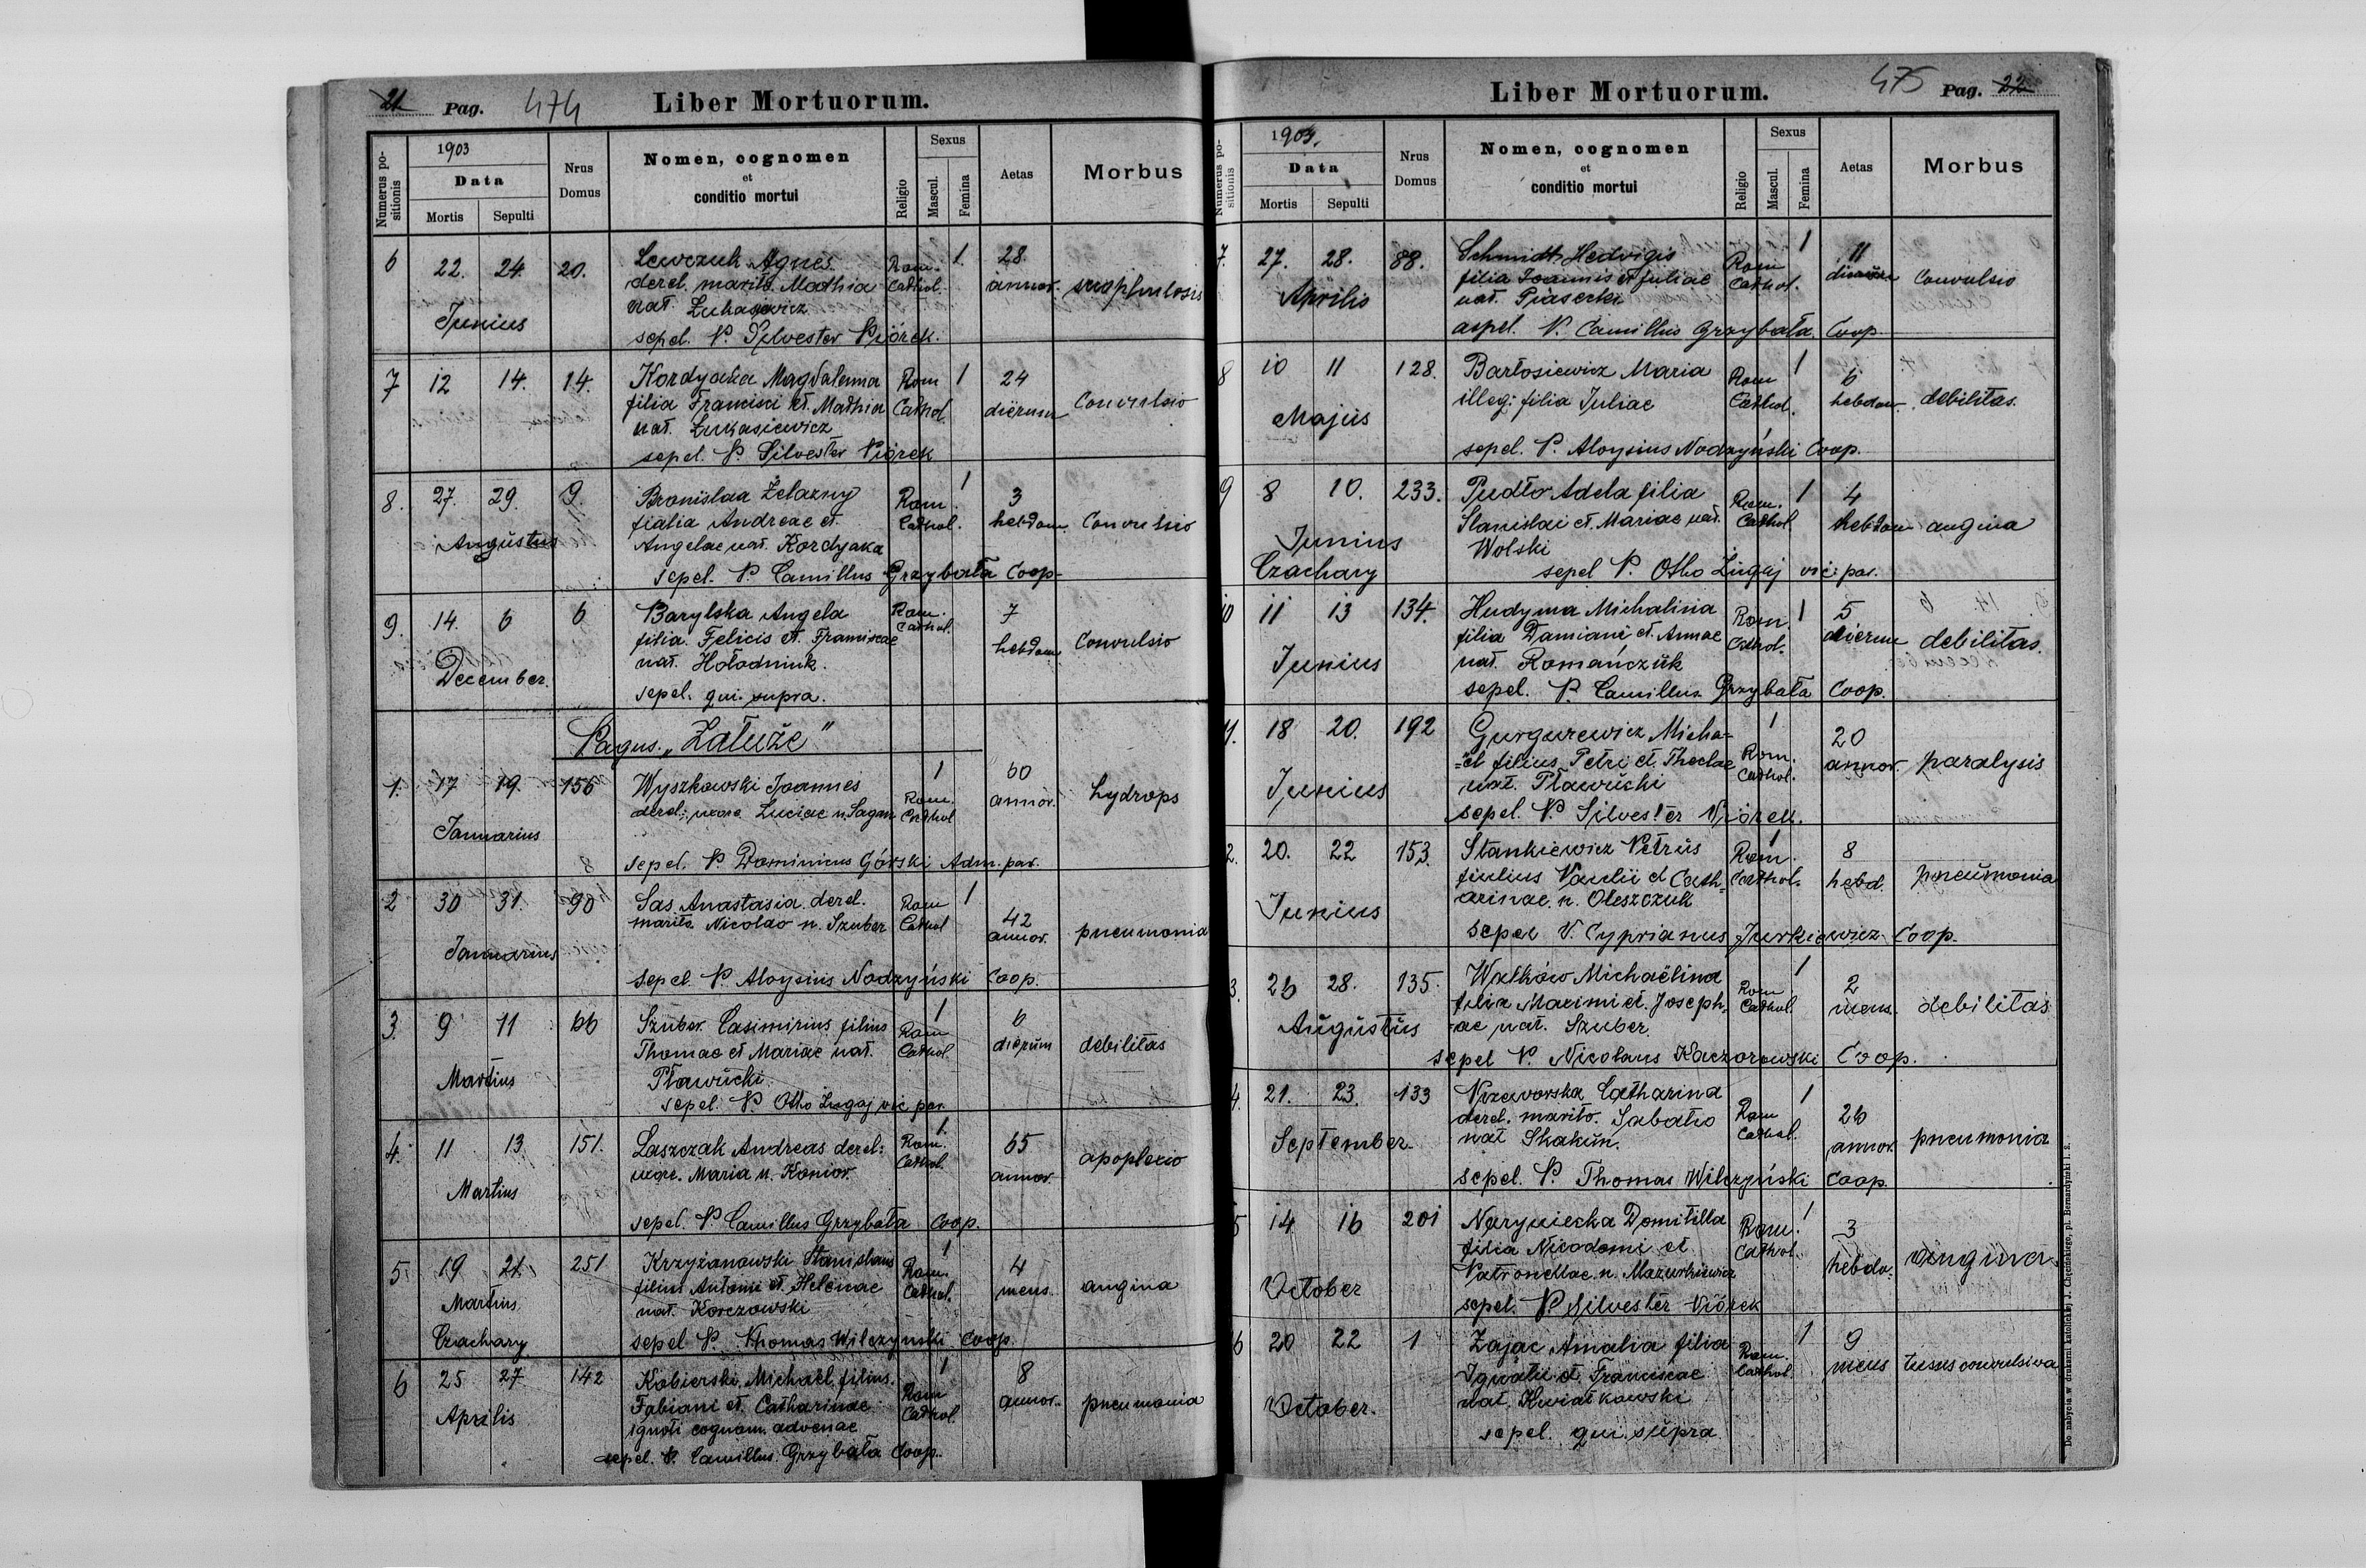 21 Pag. 474 Liber Mortuorum.
Numerus positionis
1903
Data
Mortis Sepulti
Nrus Domus
Nomen, cognomen
et
conditio mortui
Religio
Sexus
Mascul. Femina
Aetas
Morbus
6 22. 24. 20. Lewczuk Agnes Rom. 1. 28
derel. marito Mathia Cathol. annor.
nat. Łukasiewicz
Junius
sepel. P. Silvester Piórek.
7 12 14. 14. Kordyaka Magdalenna Rom 1 24
filia Francisci et Mathia Cathol. diērum Convulsio
nat. Łukasiewicz
sepel. P. Silvester Piórek
8. 27. 29. 9. Bronislaa Żelazny Rom. 1 3
fialia Andreae et Cathol. hebdom. Convulsio
Augustus Angelae nat. Kordyaka
sepel. P. Camillus Grzybała Coop.
9. 14. 6 6 Barylska Angela Rom. 7
filia Felicis et Franciscae Cathol. hebdom Convulsio
nat. Hołodniuk.
December.
sepel. qui supra.
Pagus „Załuże"
1. 17 19. 156 Wyszkowski Joannes 1 60
derel. uxore Luciae n. Sagan Rom. Cathol annor. hydrops
Januarius
8 sepel. P. Dominicus Górski Adm. par.
2 30 31. 90 Sas Anastasia derel. Rom 1 42
marito Nicolao n. Szuber Cathol annor. pneumonia
Januarius
sepel P. Aloysius Nodzyński Coop.
3. 9 11 66 Szuber Casimirius filius Rom 1 6
Thomae et Mariae nat. Cathol. dierum debilitas
Martius Pławucki
sepel. P. Otho Żugaj vic par.
4. 11 13 151. Laszczak Andreas derel: Rom. 1. 65
uxore Maria n. Konior. Cathol. annor. apoplexio
Martius
sepel. P Camillus Grzybała Coop.
5. 19 21. 251 Krzyżanowski Stanislaus 1 4
filius Antonii et Helenae Rom. Cathol. mens. angina
Martius nat. Korczowski
Czachary sepel P. Thomas Wilczyński Coop.
6 25 27 142 Kobierski Michael filius 1 8
Fabiani et Catharinae Rom Cathol. annor. pneumonia
Aprilis ignoti cognom. advenae
sepel. P. Camillus Grzybała Coop.
Liber Mortuorum. 475 Pag. 22
Numerus positionis
1903.
Data
Mortis Sepulti
Nrus Domus
Nomen, cognomen
et
conditio mortui
Religio
Sexus
Mascul. Femina
Aetas
Morbus
7. 27. 28. 88. Schmidt Hedvigis Rom 1 11
filia Joannis et Juliae Cathol. Convulsio
Aprilis nat. Piasecki
P. Camillus Grzybała Coop
8 10 11 128. Bartosiewicz Maria Rom 1 6
illeg: filia Juliae Cathol. hebdom. debilitas.
Majus
sepel. P. Aloysius Nodzyński Coop.
9 8 10. 233. Pudło Adela filia Rom. 1 4
Stanislai et Mariae nat. Cathol. hebdom angina
Junius Wolski
Czachary sepel P. Otho Żugaj vic: par.
10 11 13 134. Hudyma Michalina Rom. 1 5
filia Damiani et Annae Cathol. dierum debilitas.
Junius nat. Romańczuk
sepel. P. Camillus Grzybała Coop.
11. 18 20. 192 Gurgurewicz Micha= 1 20
=el filius Petri et Theclae Rom. Cathol. annor. paralysis
Junius nat. Pławucki
sepel. P. Silvester Piórek.
2. 20. 22 153. Stankiewicz Petrus Rom. 1 8
fiulius Paulii et Cath= Cathol. hebd. pneumonia
Junius arinae n. Oleszczuk
P. Cyprianus Jurkiewicz Coop.
3. 26 28. 135. Michaëlina Rom 1 2
filia Maximi et Joseph= Cathol. mens. debilitas
Augustus =ae nat. Szuber.
sepel P. Nicolaus Kaczorowski Coop.
4. 21. 23. 133 Catharina 1 26
derel. marito Sabatio Rom Cathol. annor. pneumonia
September nat Skakun.
sepel. P. Thomas Wilczyński Coop.
5 14 16 201 Naryniecka Domitilla Rom. 1 3
filia Nicodemi et Cathol. hebdo. angina
October Patronellae n. Mazurkiewicz
sepel. P. Silvester Piórek
6 20 22 1 Zając Amalia filia Rom. 1 9
Ignatii et Franciscae Cathol. mens tussis convulsiva
October. nat. Kwiatkowski
sepel. qui supra
Do nabycia w drukarni katolickiej J. Chęcińskiego, pl. Bernardyński l. 2.